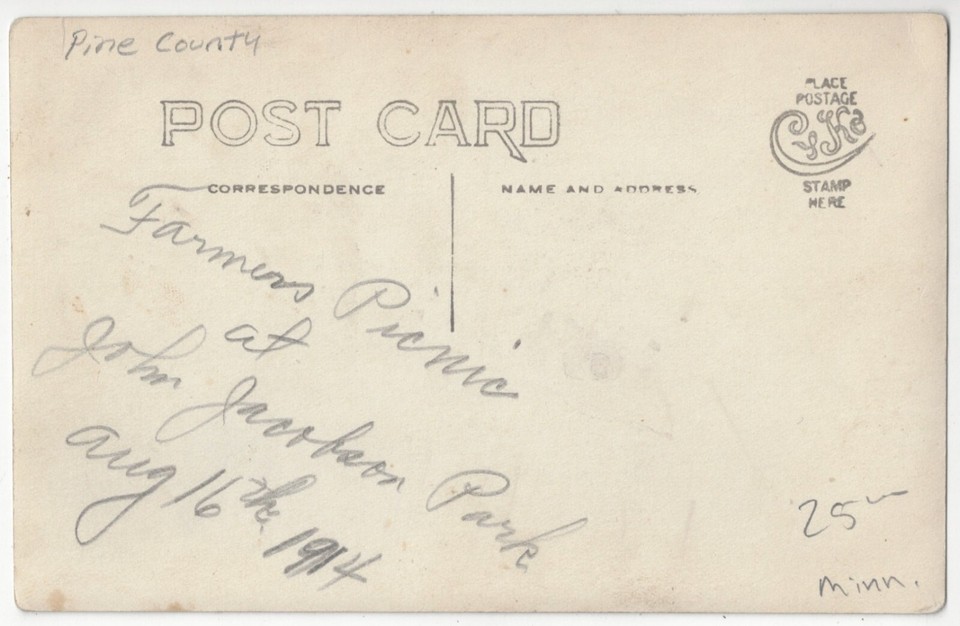 Pine County
POST CARD
PLACE
POSTAGE
CYKO
STAMP
HERE
CORRESPONDENCE
NAME AND ADDRESS
Farmers Picnic
at
John Jacobson Park
Aug 16th 1914
25
Minn.